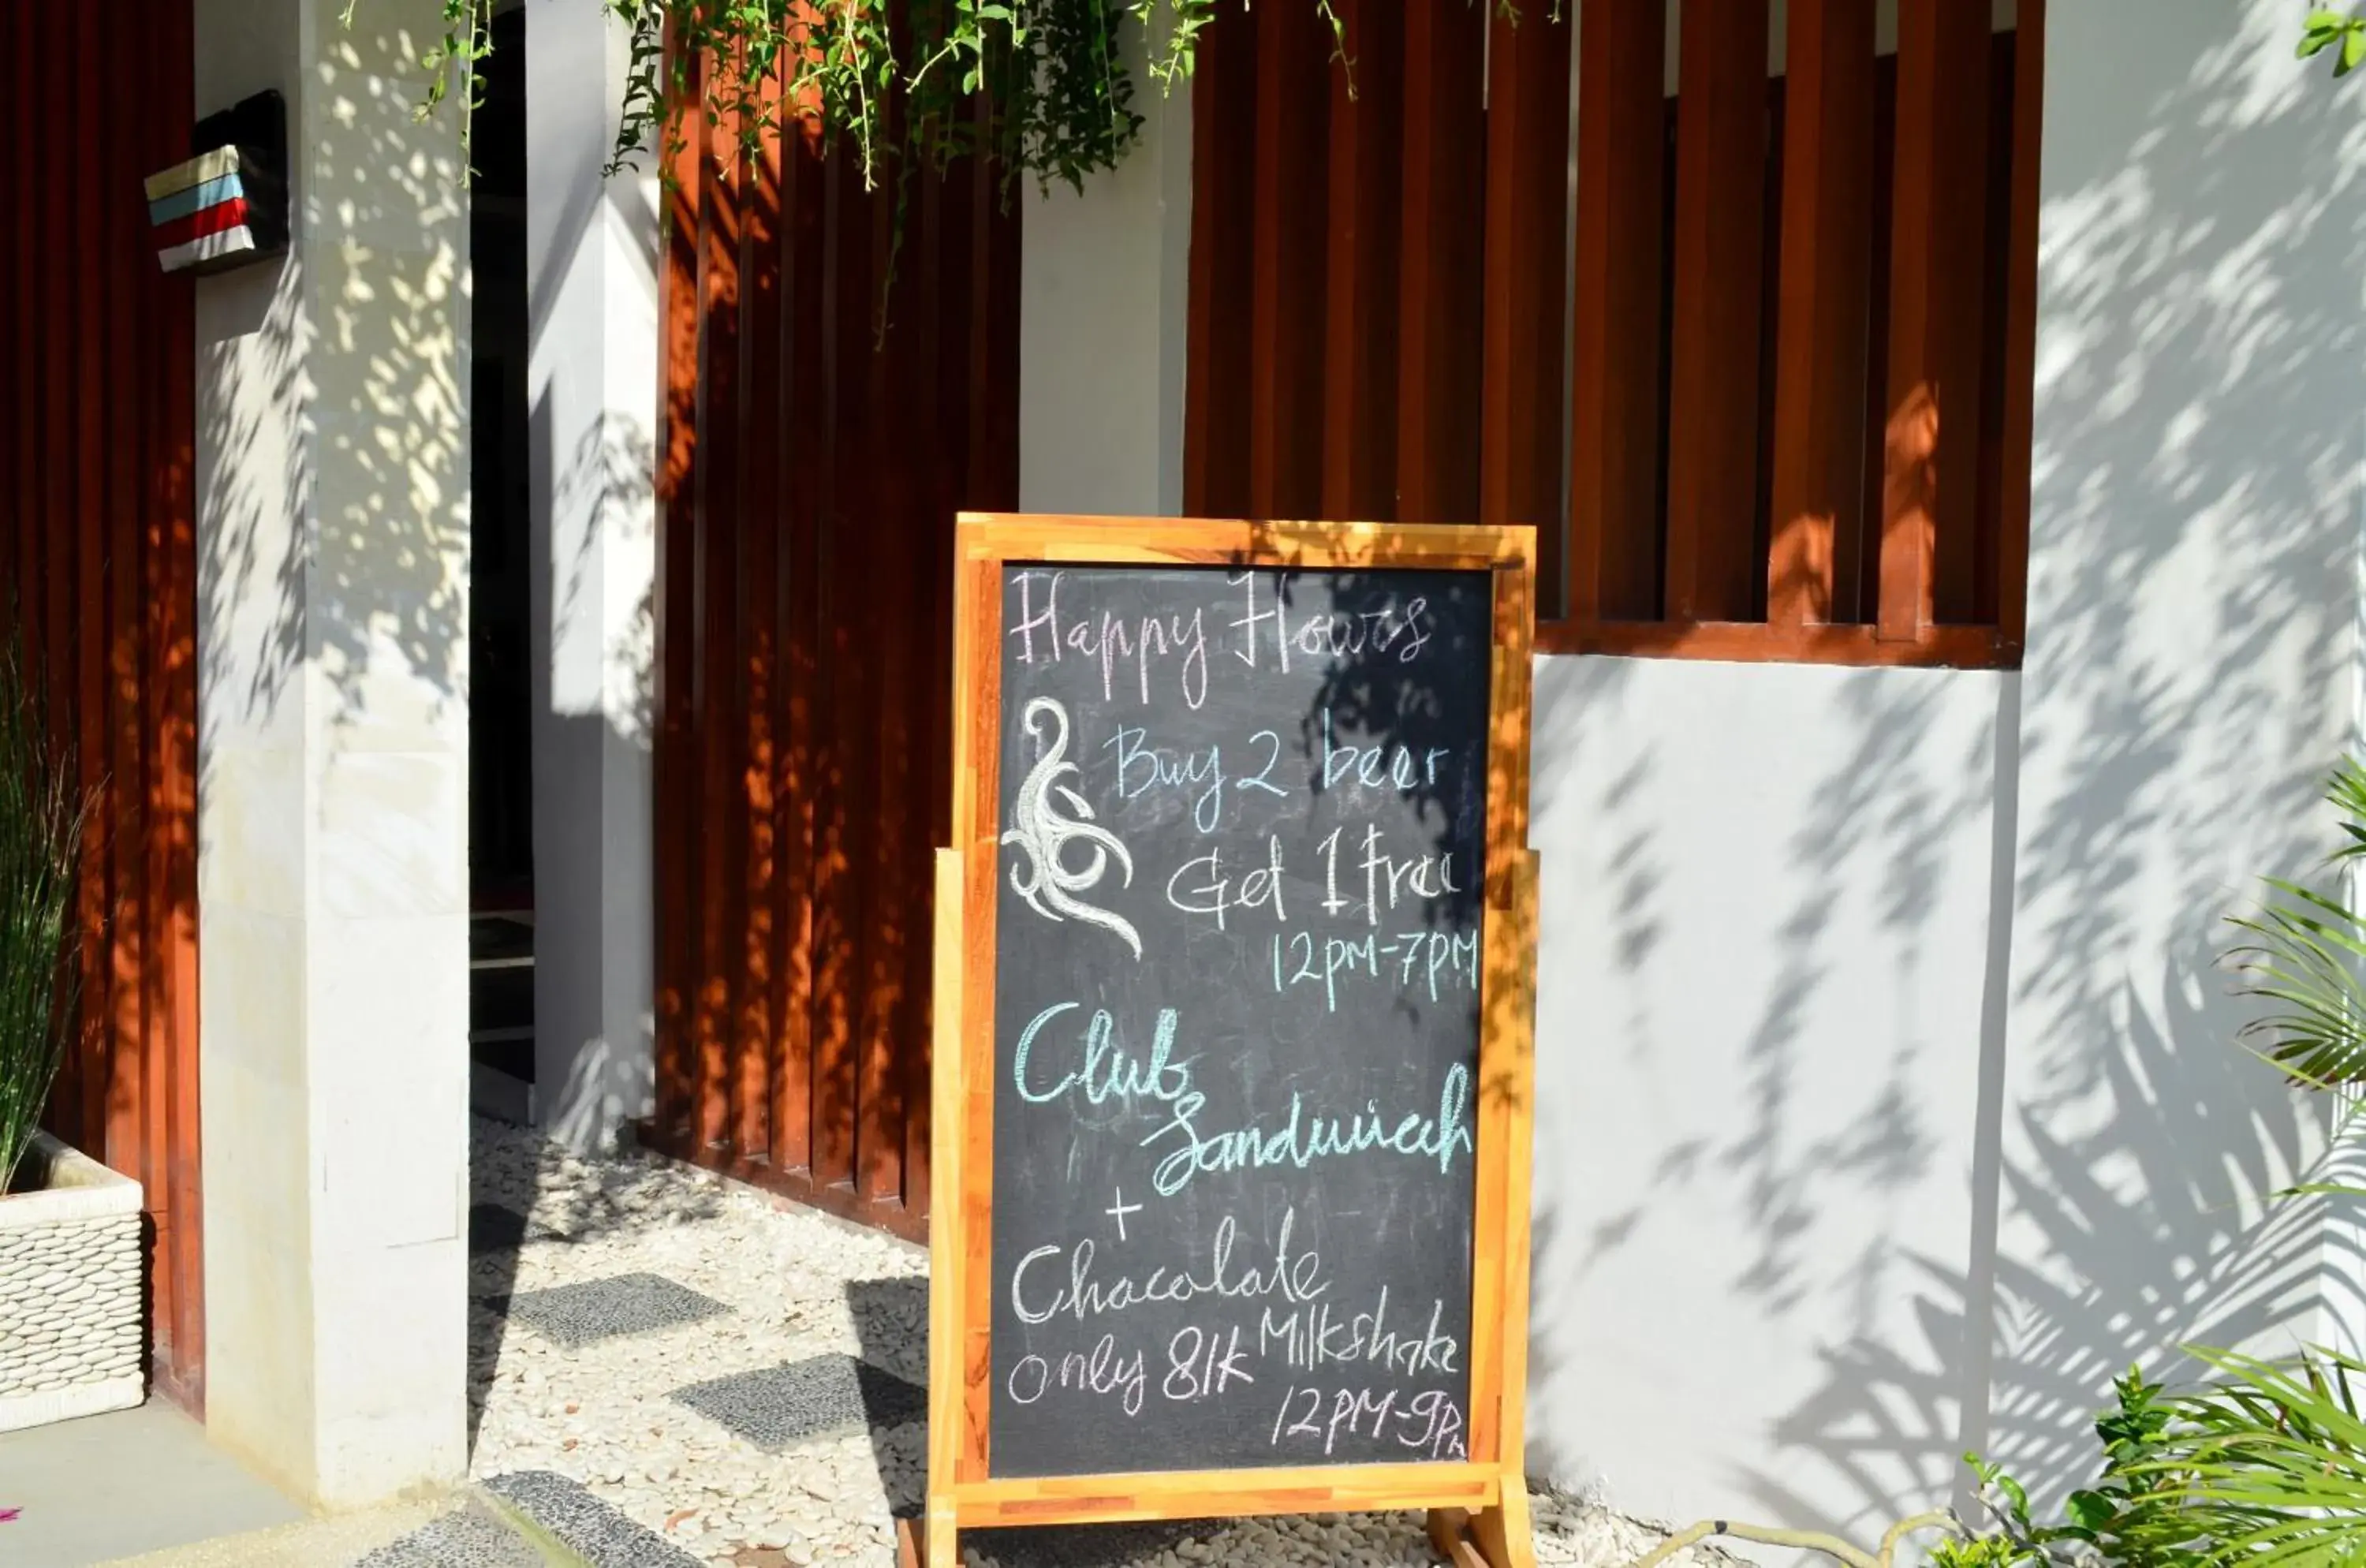 Happy Hours
Buy 2 beer
Get 1 free
12PM-7PM
Club
Sandwich
+
Chocolate
Milkshake
only 81k
12PM-9PM